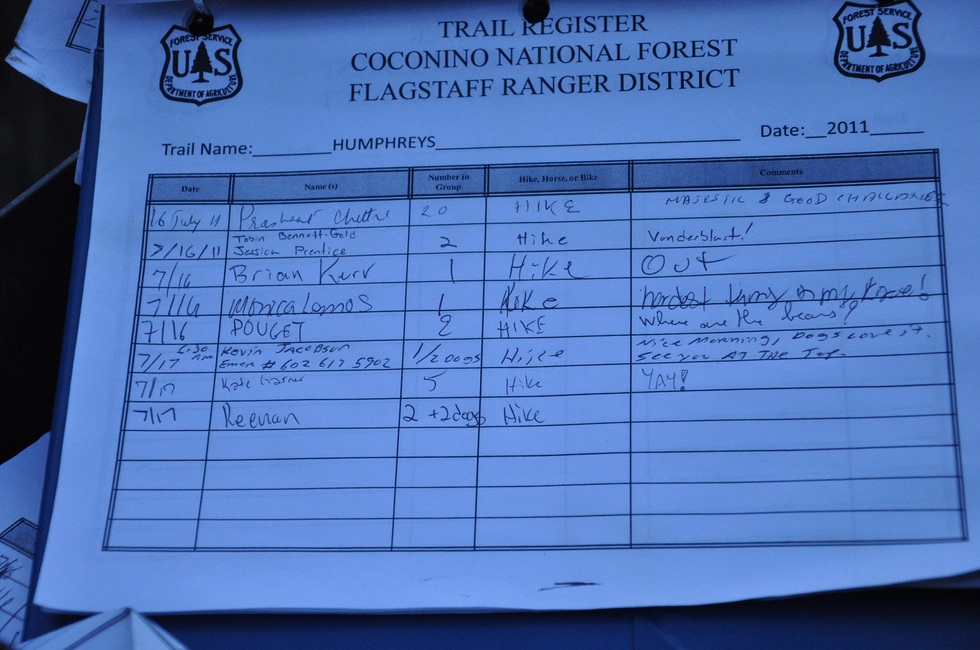 FOREST SERVICE
US
DEPARTMENT OF AGRICULTURE
TRAIL REGISTER
COCONINO NATIONAL FOREST
FLAGSTAFF RANGER DISTRICT
FOREST SERVICE
US
DEPARTMENT OF AGRICULTURE
Trail Name: HUMPHREYS Date: 2011
Date Name (s) Number in Group Hike, Horse, or Bike Comments
16 July 11 Prashant 20 HIKE MAJESTIC & GOOD CHALLENGE
7/16/11 Tobin Bennett-Gold 2 Hike Vonderblast!
Jessica Prentice
7/16 Brian Kerr 1 Hike Out
7/16 Monica Lomos 1 Hike hardest thing in my
7/16 POUGET 2 HIKE Where are the bears?
7/17 6:30 Am Kevin Jacobson 1/2 Dogs Hike Nice Morning, Dogs Love it.
Emer # 602 617 5902 See you AT The Top.
7/17 Kate 5 Hike YAY!
7/17 Keenan 2 +2dogs Hike